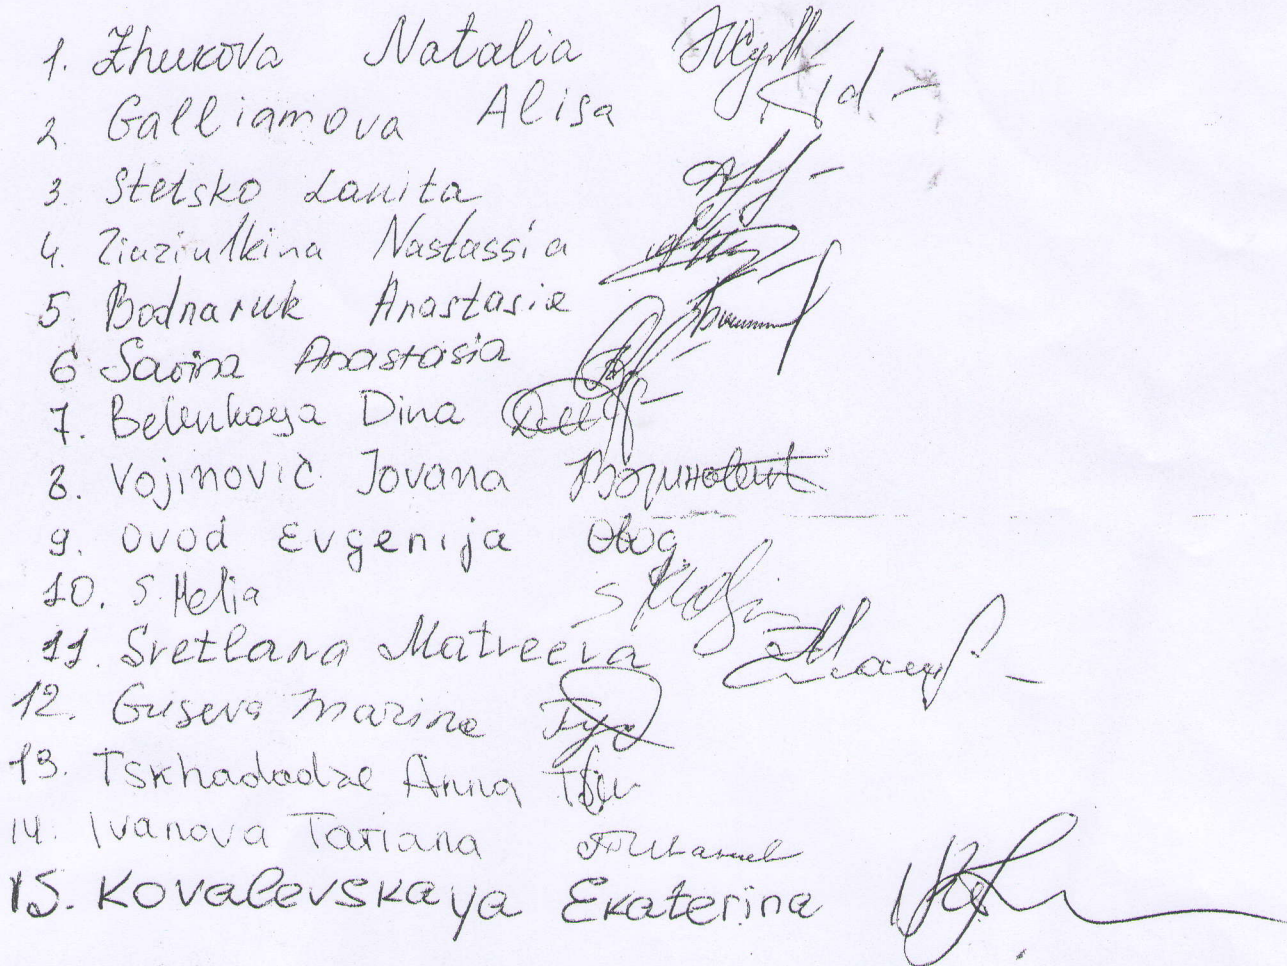 1. Zhukova Natalia
2 Galliamova Alisa
3. Stetsko Lanita
4. Ziaziulkina Nastassia
5. Bodnaruk Anastasia
6 Savina Anastasia
7. Belenkaya Dina
8. Vojinović Jovana
9. Ovod Evgenija Овод
10. S. Melia
11. Svetlana Matveeva
12. Guseva Marina
13. Tskhadadze Anna
14. Ivanova Tatiana
15. Kovalevskaya Ekaterina